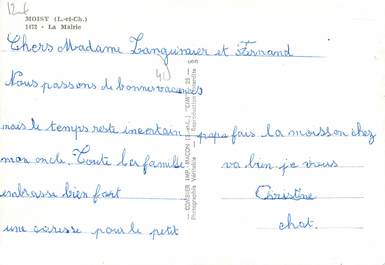 12 f
MOISY (L.-et-Ch.)
1472 - La Mairie
Chers Madame Languinier et Fernand
40
Nous passons de bonnes vacances
mais le temps reste incertain, papa fais la moisson chez
mon oncle. Toute la famille va bien je vous
embrasse bien fort Christine
une caresse pour le petit chat.
COMBIER IMP. MACON (S.-et-L.) "CIM"
Photographie Véritable - Reproduction Interdite